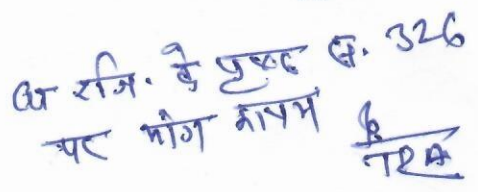 रजि. के पृष्ठ क्र. 326
पर मांग कायम
TRA